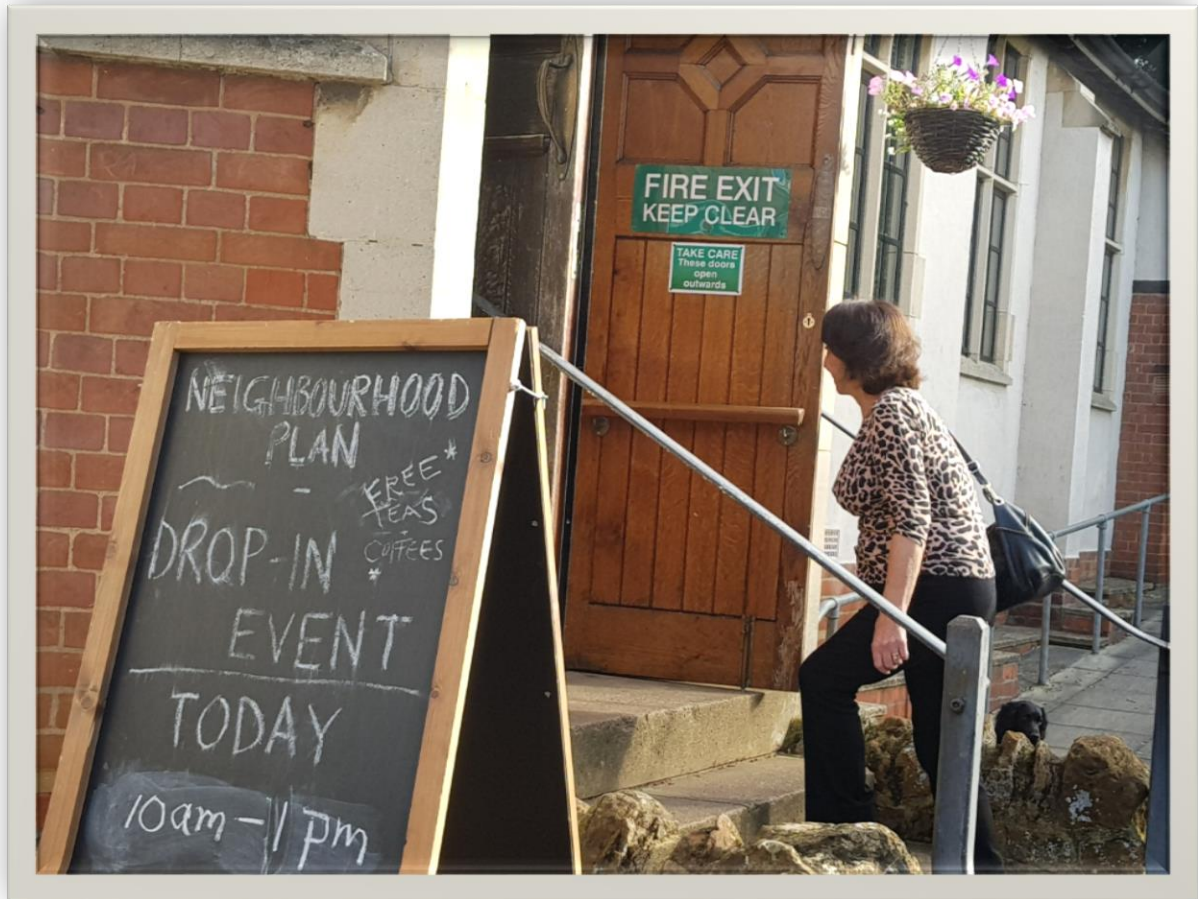 FIRE EXIT
KEEP CLEAR
TAKE CARE
These doors
open
outwards
NEIGHBOURHOOD
PLAN
FREE*
TEAS
COFFEES
*
DROP-IN
EVENT
TODAY
10am-1pm